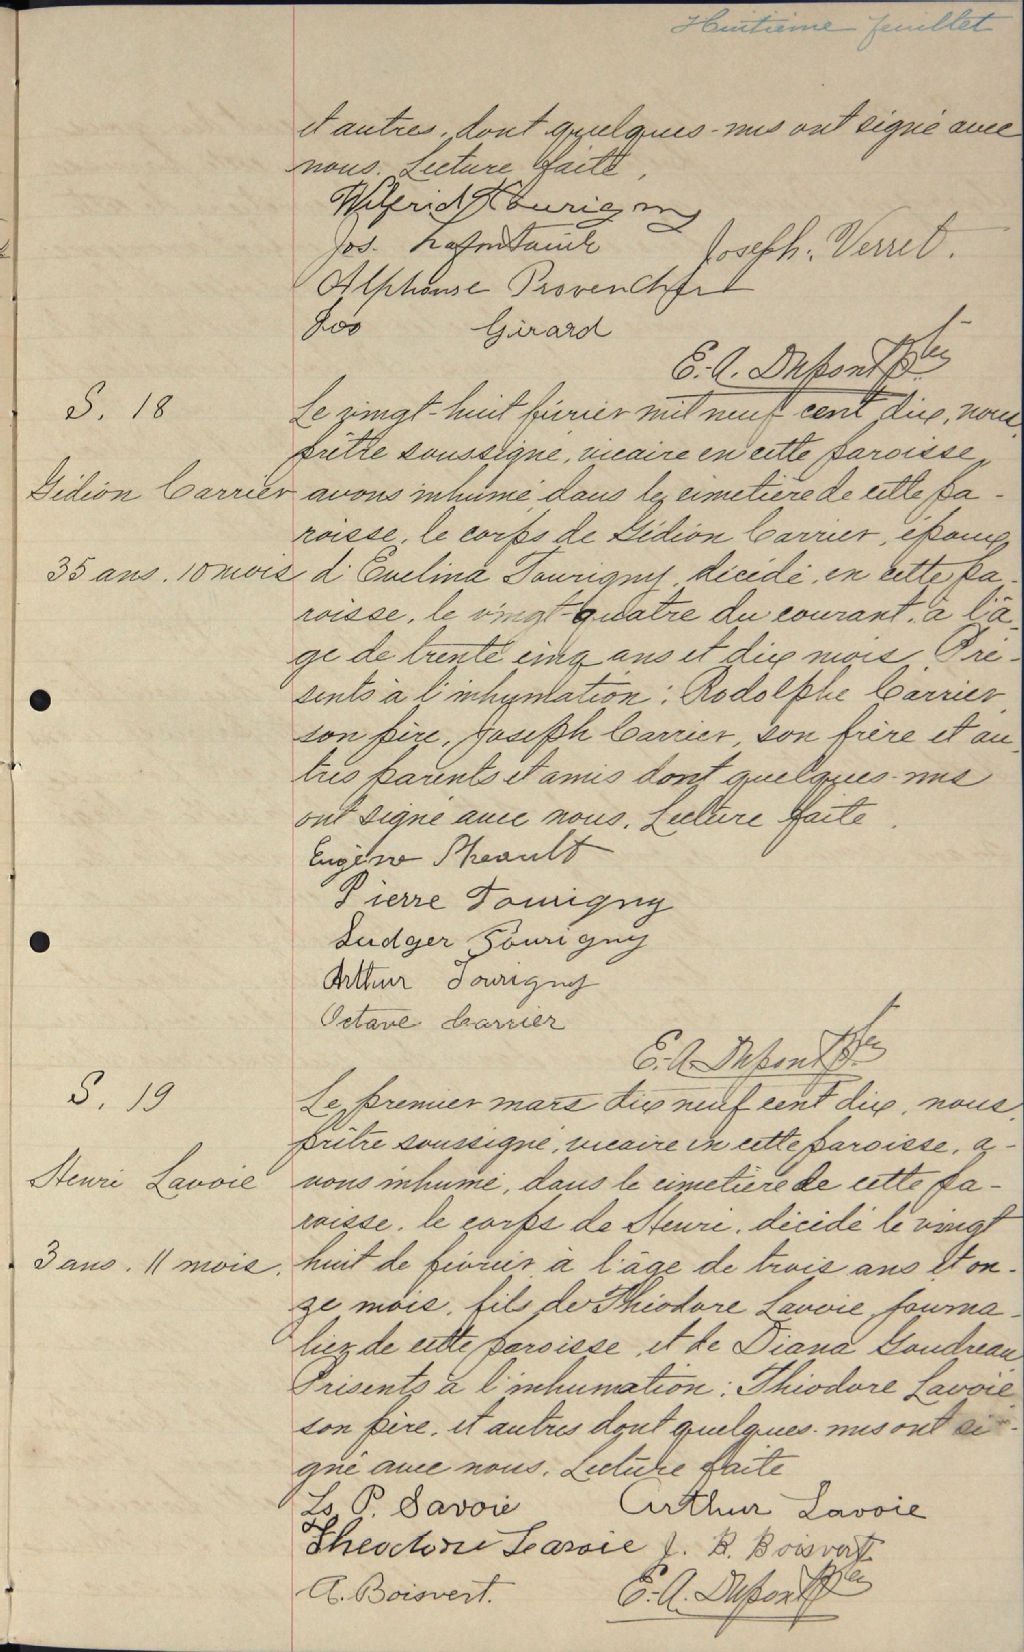 Huitième feuillet
et autres, dont quelques-uns ont signé avec
nous. Lecture faite.
Wilfrid Tourigny
Jos. Lafontaine Joseph. Verret.
Alphonse Provencher
Léo Girard
E.-A. Dupont Ptre
S. 18
Le vingt-huit février mil neuf cent dix, nous,
prêtre soussigné, vicaire en cette paroisse,
Gédéon Carrier
avons inhumé dans le cimetière de cette pa-
roisse, le corps de Gédéon Carrier, époux
35 ans. 10 mois
d'Evelina Tourigny, décédé, en cette pa-
roisse, le vingt-quatre du courant, à l'â-
ge de trente cinq ans et dix mois. Pré-
sents à l'inhumation: Rodolphe Carrier,
son père, Joseph Carrier, son frère et au-
tres parents et amis dont quelques-uns
ont signé avec nous. Lecture faite.
Eugène Pheault
Pierre Tourigny
Ludger Tourigny
Arthur Tourigny
Octave Carrier
E.-A. Dupont Ptre
S. 19
Le premier mars dix neuf cent dix, nous,
prêtre soussigné, vicaire en cette paroisse, a-
Henri Lavoie
vons inhumé, dans le cimetière de cette pa-
roisse, le corps de Henri, décédé le vingt
3 ans. 11 mois.
huit de février à l'âge de trois ans et on-
ze mois, fils de Théodore Lavoie, journa-
lier de cette paroisse, et de Diana Goudreau
Présents à l'inhumation: Théodore Lavoie
son père, et autres dont quelques-uns ont si-
gné avec nous. Lecture faite
Ls P. Savoie Arthur Lavoie
Theodore Lavoie J. B. Boisvert
A. Boisvert. E.-A. Dupont Ptre